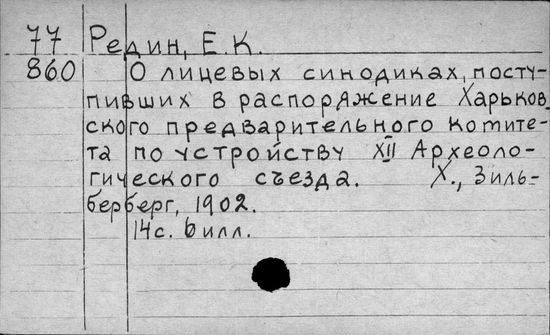 77 Редин, Е.К.
860 О лицевых синодиках, посту-
пивших в распоряжение Харьков
ского предварительного комите-
та по устройству XII Археоло-
гического съезда. Х., Зиль-
берберг, 1902.
14с. 6илл.